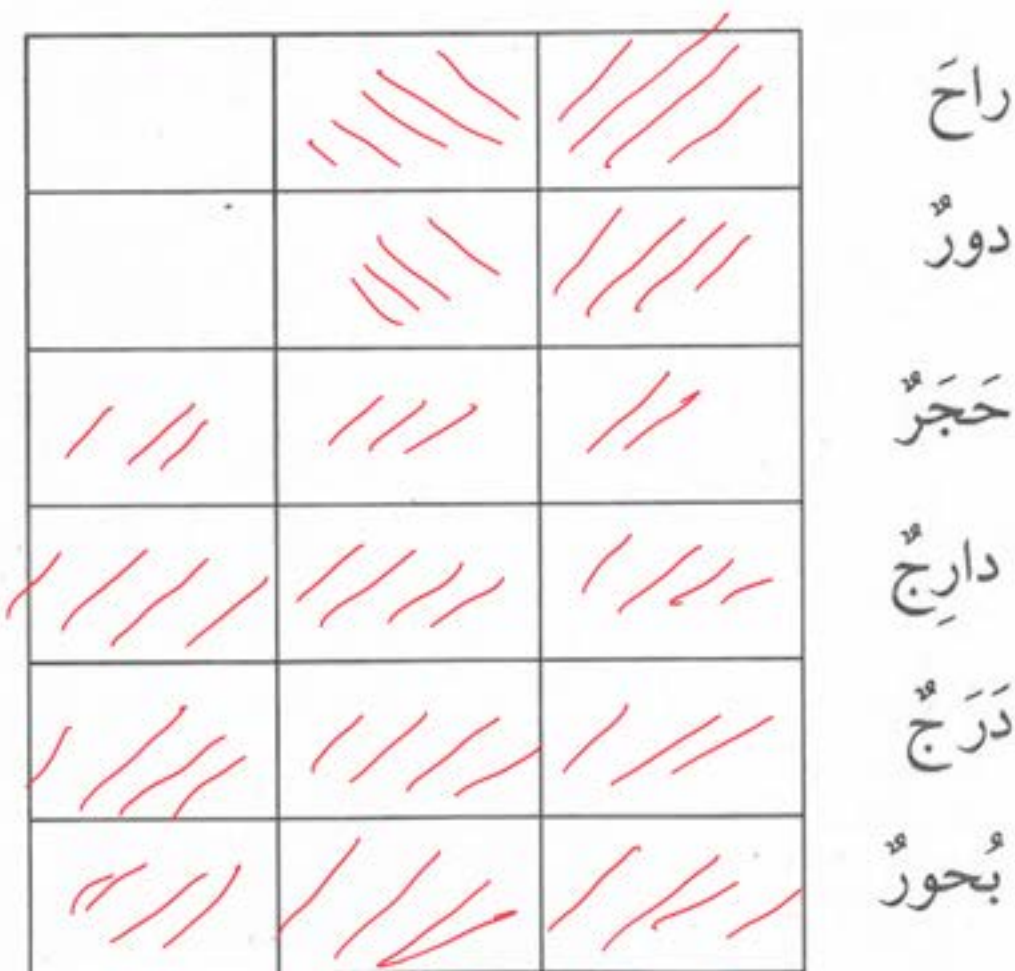 راحَ
دورٌ
حَجَرٌ
دارِجٌ
دَرَجٌ
بُحورٌ